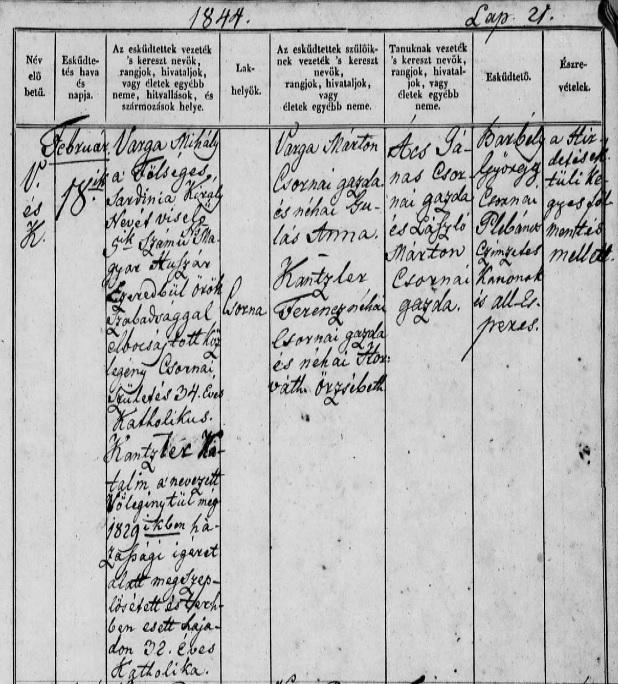 1844.
Lap. 21.
Név
elő
betű.
Esküdte-
tés hava
és
napja.
Az esküdtettek vezeték
's kereszt nevök,
rangjok, hivataljok,
vagy életek egyébb
neme, hitvallások, és
származások helye.
Lak-
helyök.
Az esküdtettek szülőik-
nek vezeték 's kereszt
nevök,
rangjok, hivataljok,
vagy
életek egyébb neme.
Tanuknak vezeték
's kereszt nevök,
rangjok, hivatal-
jok, vagy
életek egyébb
neme.
Esküdtető.
Észre-
vételek.
V.
és
K.
Február
18ik
Varga Mihály
a Fölséges
Sardinia Király
Nevét viselő
5ik Számú Ma-
gyar Huszár
Ezeredbül örök
Szabadsággal
elbocsájtott köz
legény Csornai
születés 34. Éves
Katholikus.
Kantzler Ka-
talin a nevezett
Vőlegénytül meg
1829 ikben há-
zassági igéret
alatt megszep-
lősétett és terh-
ben esett haja-
don 32. éves
Katholika.
Csorna
Varga Márton
Csornai gazda
és néhai Gu-
lás Anna.
Kantzler
Ferencz néhai
Csornai gazda
és néhai Hor-
váth Örzsébeth
Ács Já-
nas Csor-
nai gazda
és László
Márton
Csornai
gazda.
Barbély
György
Csornai
Plébános
Czimzetes
Kanonok
és all-Es-
peres.
a Hir-
detések
tüli ke-
gyes föl-
mentés
mellett.